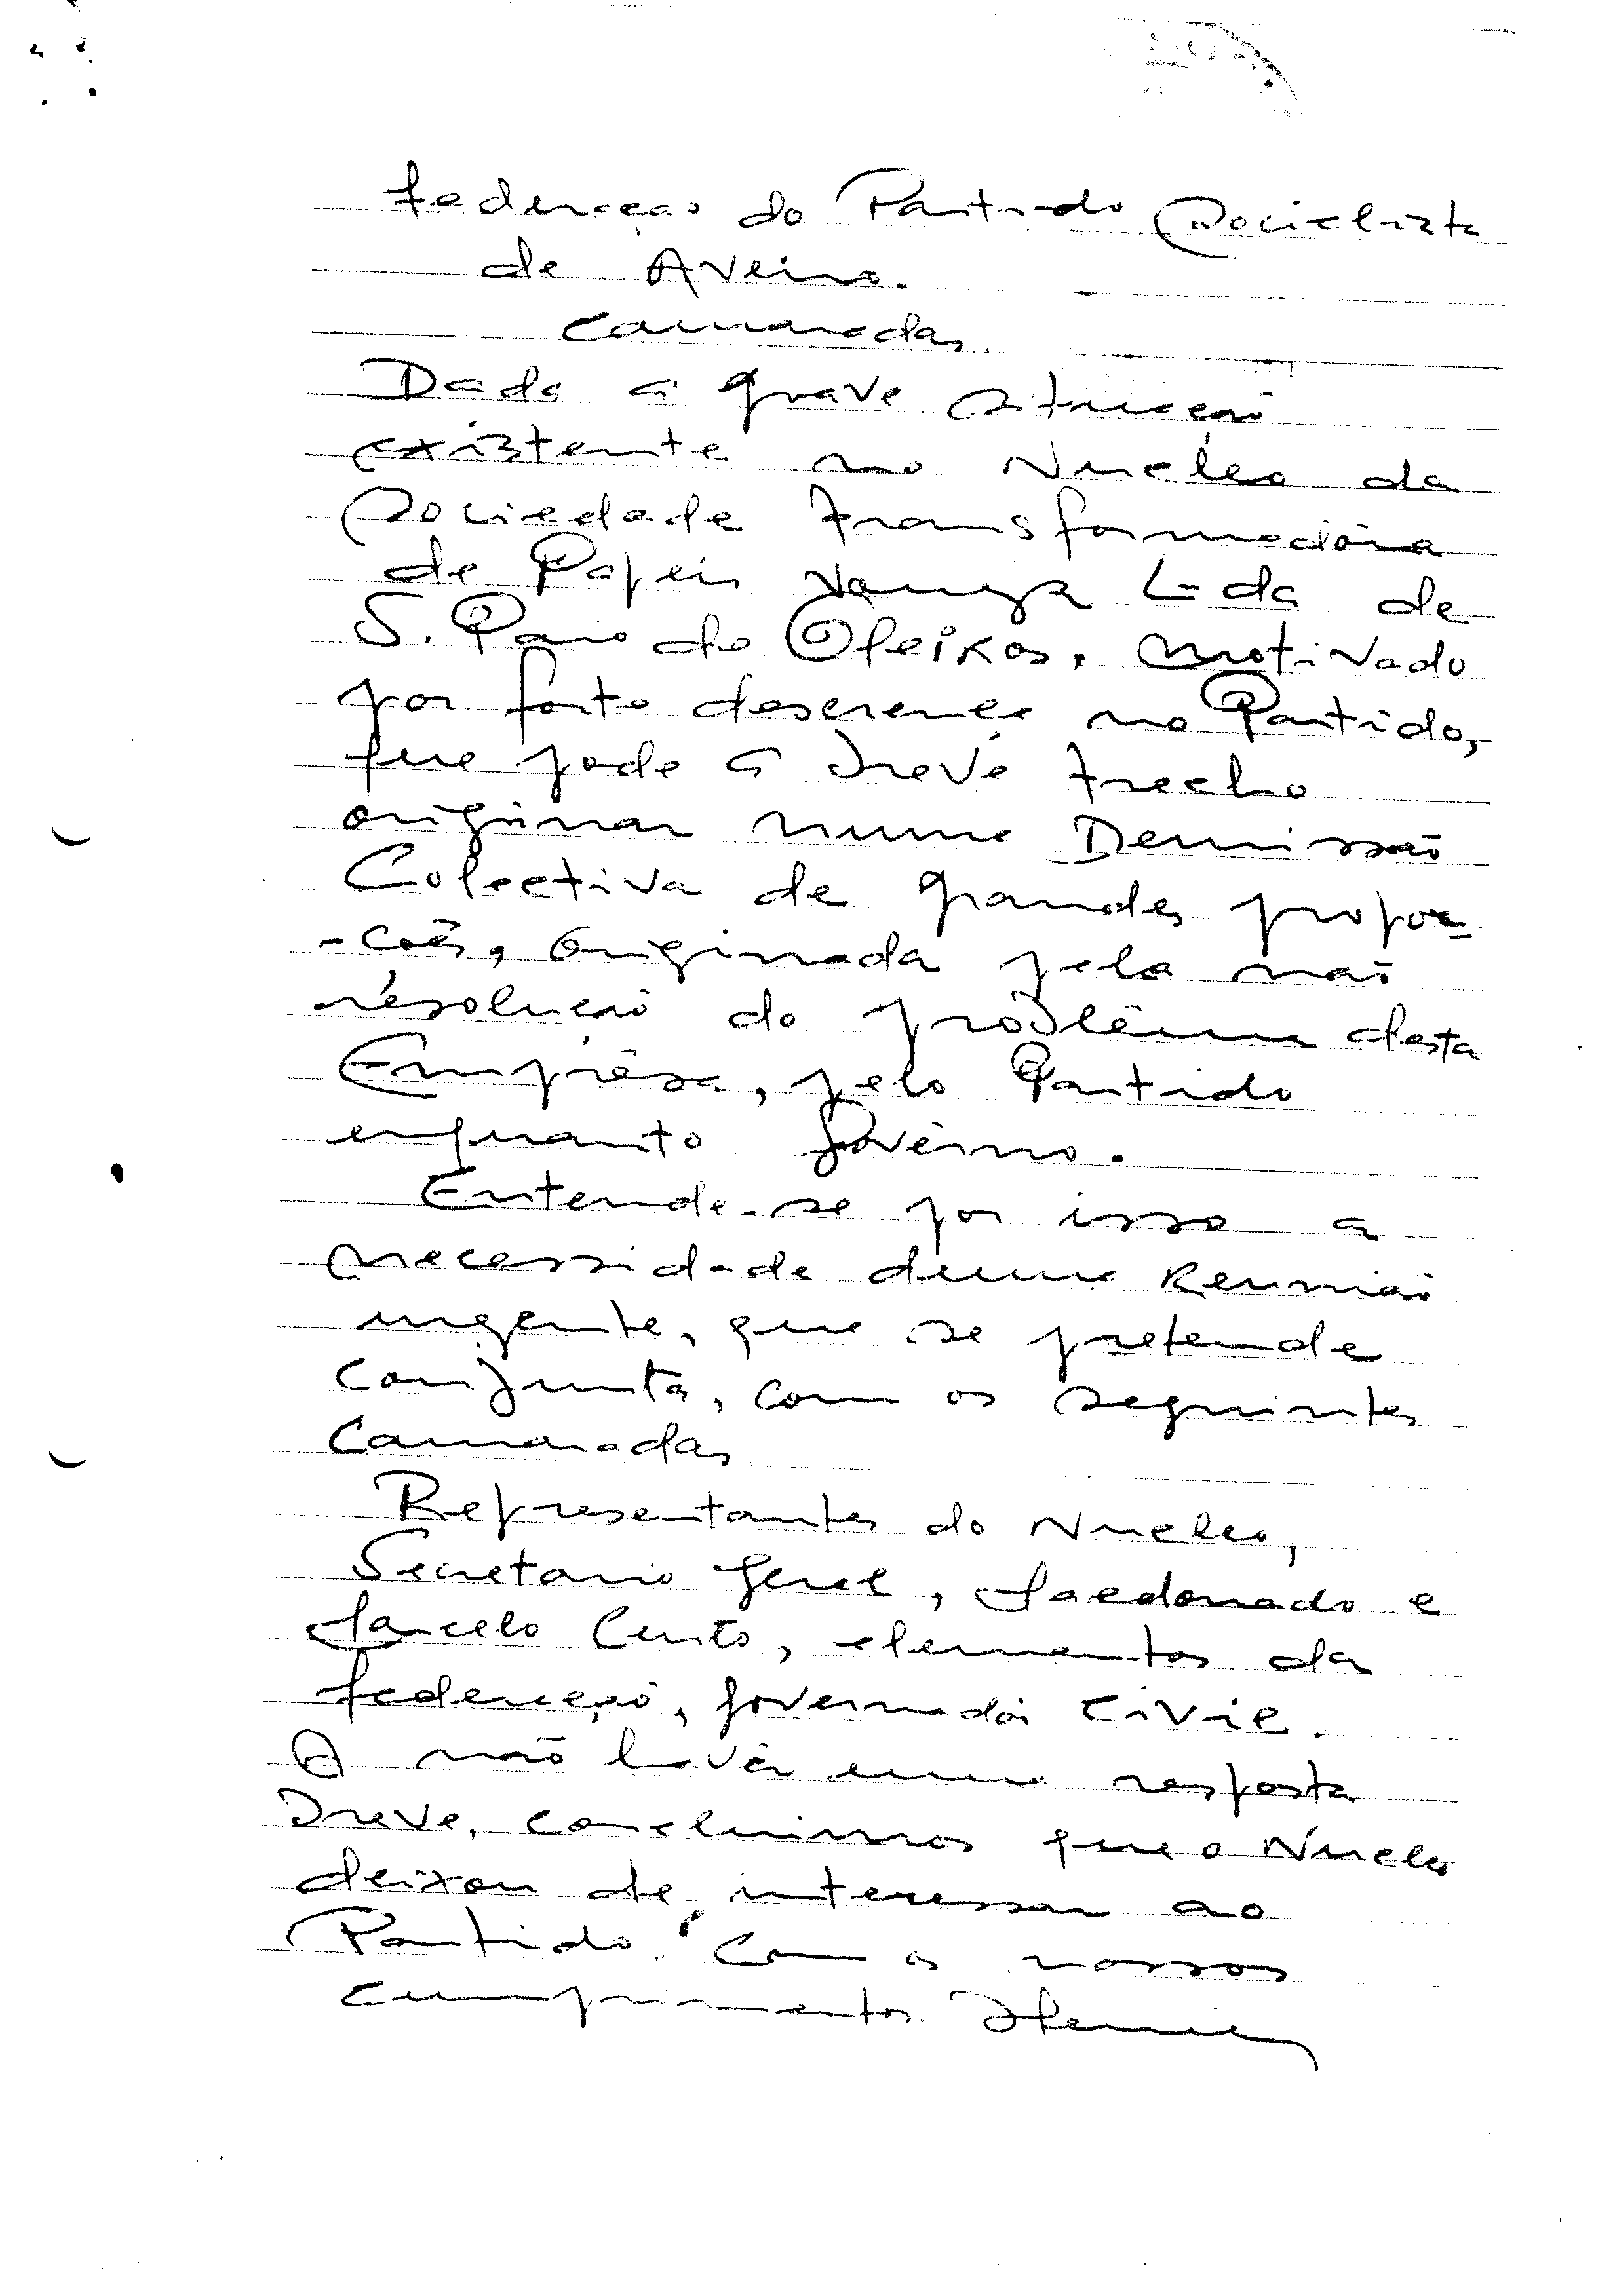 Federação do Partido Socialista
de Aveiro.
Camaradas
Dada a grave situação
existente no Nucleo da
Sociedade Transformadora
de Papeis Vouga Lda de
S. Paio de Oleiros, motivado
por forte descrença no Partido,
que pode a breve trecho
originar numa Demissão
Colectiva de grandes propor-
-coẽs, originada pela não
resolução do problêma desta
Emprêsa, pelo Partido
enquanto Govêrno.
Entende-se por isso a
necessidade duma Reunião
urgente, que se pretende
conjunta, com os seguintes
Camaradas
Representantes do Nucleo,
Secretario Geral, e
elementos da
Federação, Governador Civil.
A não havêr uma resposta
breve, concluimos que o Núcleo
deixou de interessar ao
Partido. Com os nossos
cumprimentos.